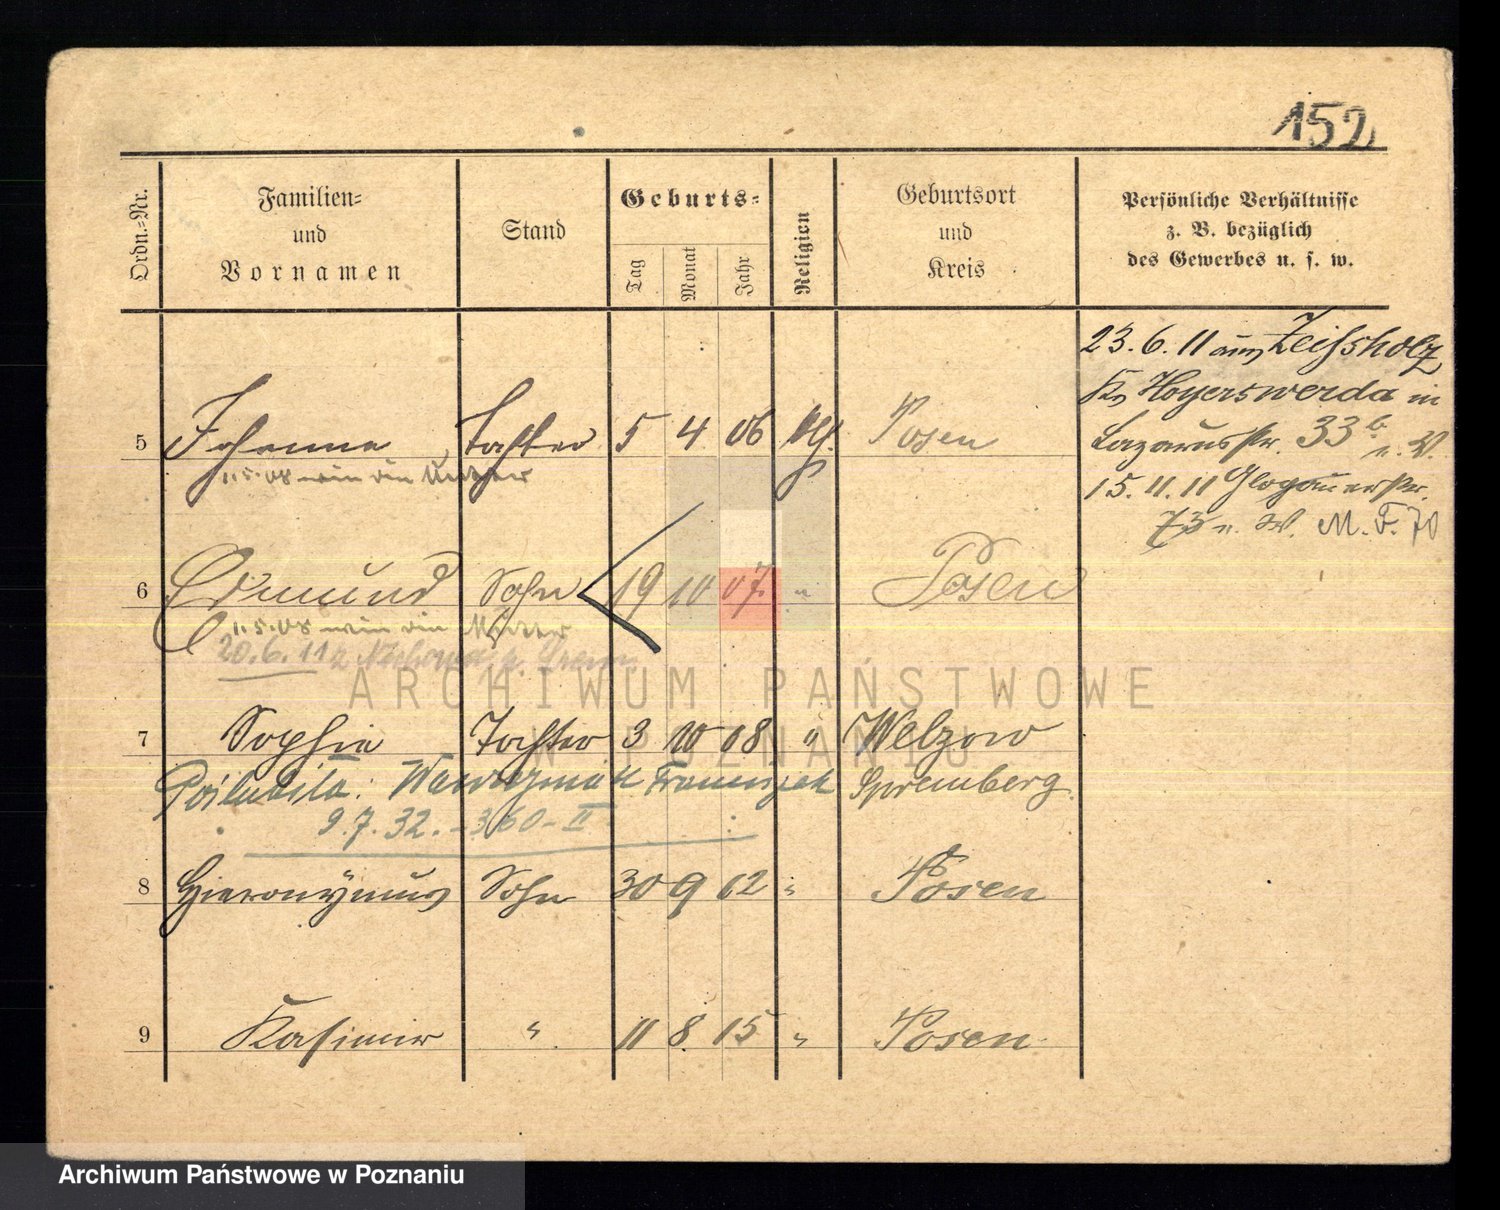 152
Ordn.=Nr.
Familien=
und
Vornamen
Stand
Geburts=
Tag
Monat
Jahr
Religion
Geburtsort
und
Kreis
Persönliche Verhältnisse
z. B. bezüglich
des Gewerbes u. s. w.
23.6.11 aus Zeissholz
Kr. Hoyerswerda in
Lazarusstr. 33b
n. W.
15.11.11 Glogauerstr.
73 n. W. M. F. 70
5 Johanna Tochter 5 4 06 Posen
1.5.08 wie die Mutter
6 Edmund Sohn 19 10 07 " Posen
1.5.08 wie die Mutter
20.6.11 z.
7 Sophie Tochter 3 10 08 " Welzow
Spremberg
9.7.32. - 360 - II
8 Hieronymus Sohn 30 9 12 " Posen
9 Kasimir " 11 8 15 " Posen
ARCHIWUM PAŃSTWOWE
W POZNANIU
Archiwum Państwowe w Poznaniu